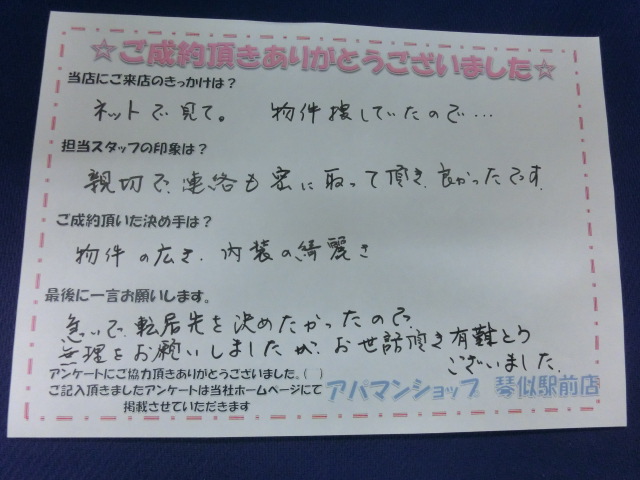 ☆ご成約頂きありがとうございました☆
当店にご来店のきっかけは？
ネットで見て。 物件捜していたので…
担当スタッフの印象は？
親切で、連絡も密に取って頂き、良かったです。
ご成約頂いた決め手は？
物件の広さ、内装の綺麗さ
最後に一言お願いします。
急いで、転居先を決めたかったので、
無理をお願いしましたが、お世話頂き有難とう
ございました。
アンケートにご協力頂きありがとうございました。( )
ご記入頂きましたアンケートは当社ホームページにて
掲載させていただきます
アパマンショップ 琴似駅前店